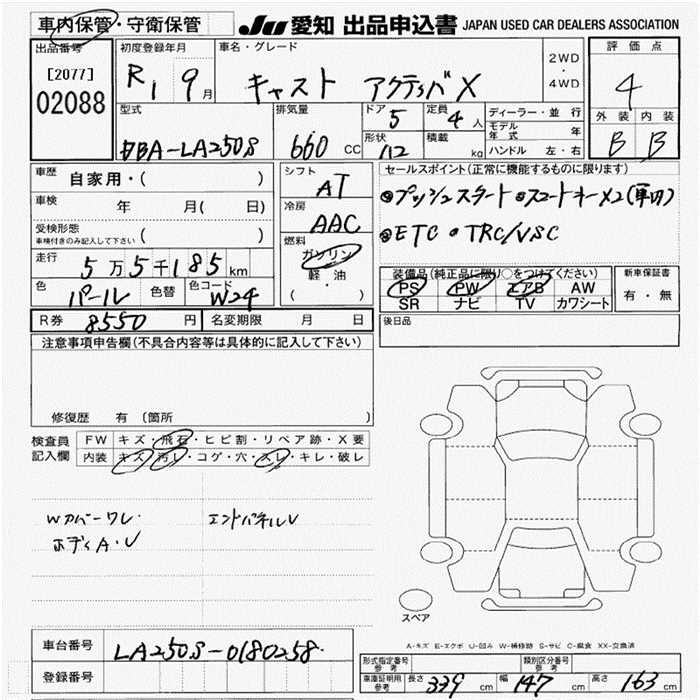 車内保管・守衛保管 JU 愛知 出品申込書 JAPAN USED CAR DEALERS ASSOCIATION
出品番号 初度登録年月 車名・グレード 2WD・4WD 評価点
[2077]
02088
R1 9月 キャスト アクティバX 4
型式 排気量 ドア 5 定員 4人 ディーラー・並行 外装 内装
モデル年式 年
DBA-LA250S 660 CC 形状 積載 kg ハンドル 左・右 B B
車歴 自家用・( ) シフト AT セールスポイント(正常に機能するものに限ります)
車検 年 月( 日) 冷房 AAC プッシュスタート スマートキーx2(車内)
受検形態 ( )
車検付きのみ記入して下さい
燃料 ETC TRC/VSC
走行 5万5千185km ガソリン
軽油
( )
装備品(純正品に限り○をつけてください) 新車保証書
色 パール 色替 色コード W24 PS PW エアB AW 有・無
SR ナビ TV カワシート
R券 8550円 名変期限 月 日 後日品
注意事項申告欄(不具合内容等は具体的に記入して下さい)
修復歴 有(箇所
検査員 FW キズ・飛石・ヒビ割・リペア跡・X要
記入欄 内装 キズ・汚レ・コゲ・穴・スレ・キレ・破レ
Wカバーワレ・ エンドパネルV
ボディA・V
スペア
A-キズ E-エクボ U-凹み W-補修跡 S-サビ C-腐食 XX-交換済
車台番号 LA250S-0180258
登録番号
形式指定番号 参考 類別区分番号 参考
車庫証明用 参考 長さ 339cm 幅 147cm 高さ 163cm